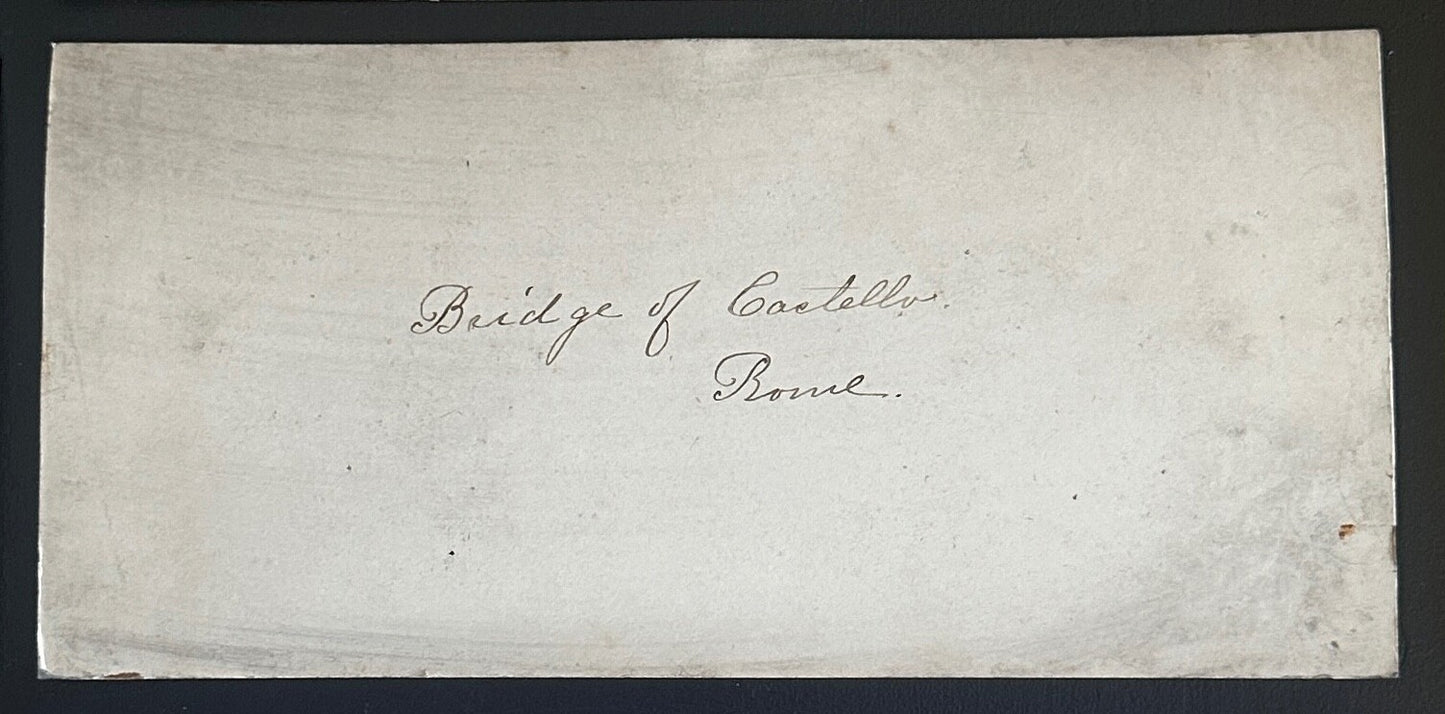 Bridge of Castello.
Rome.